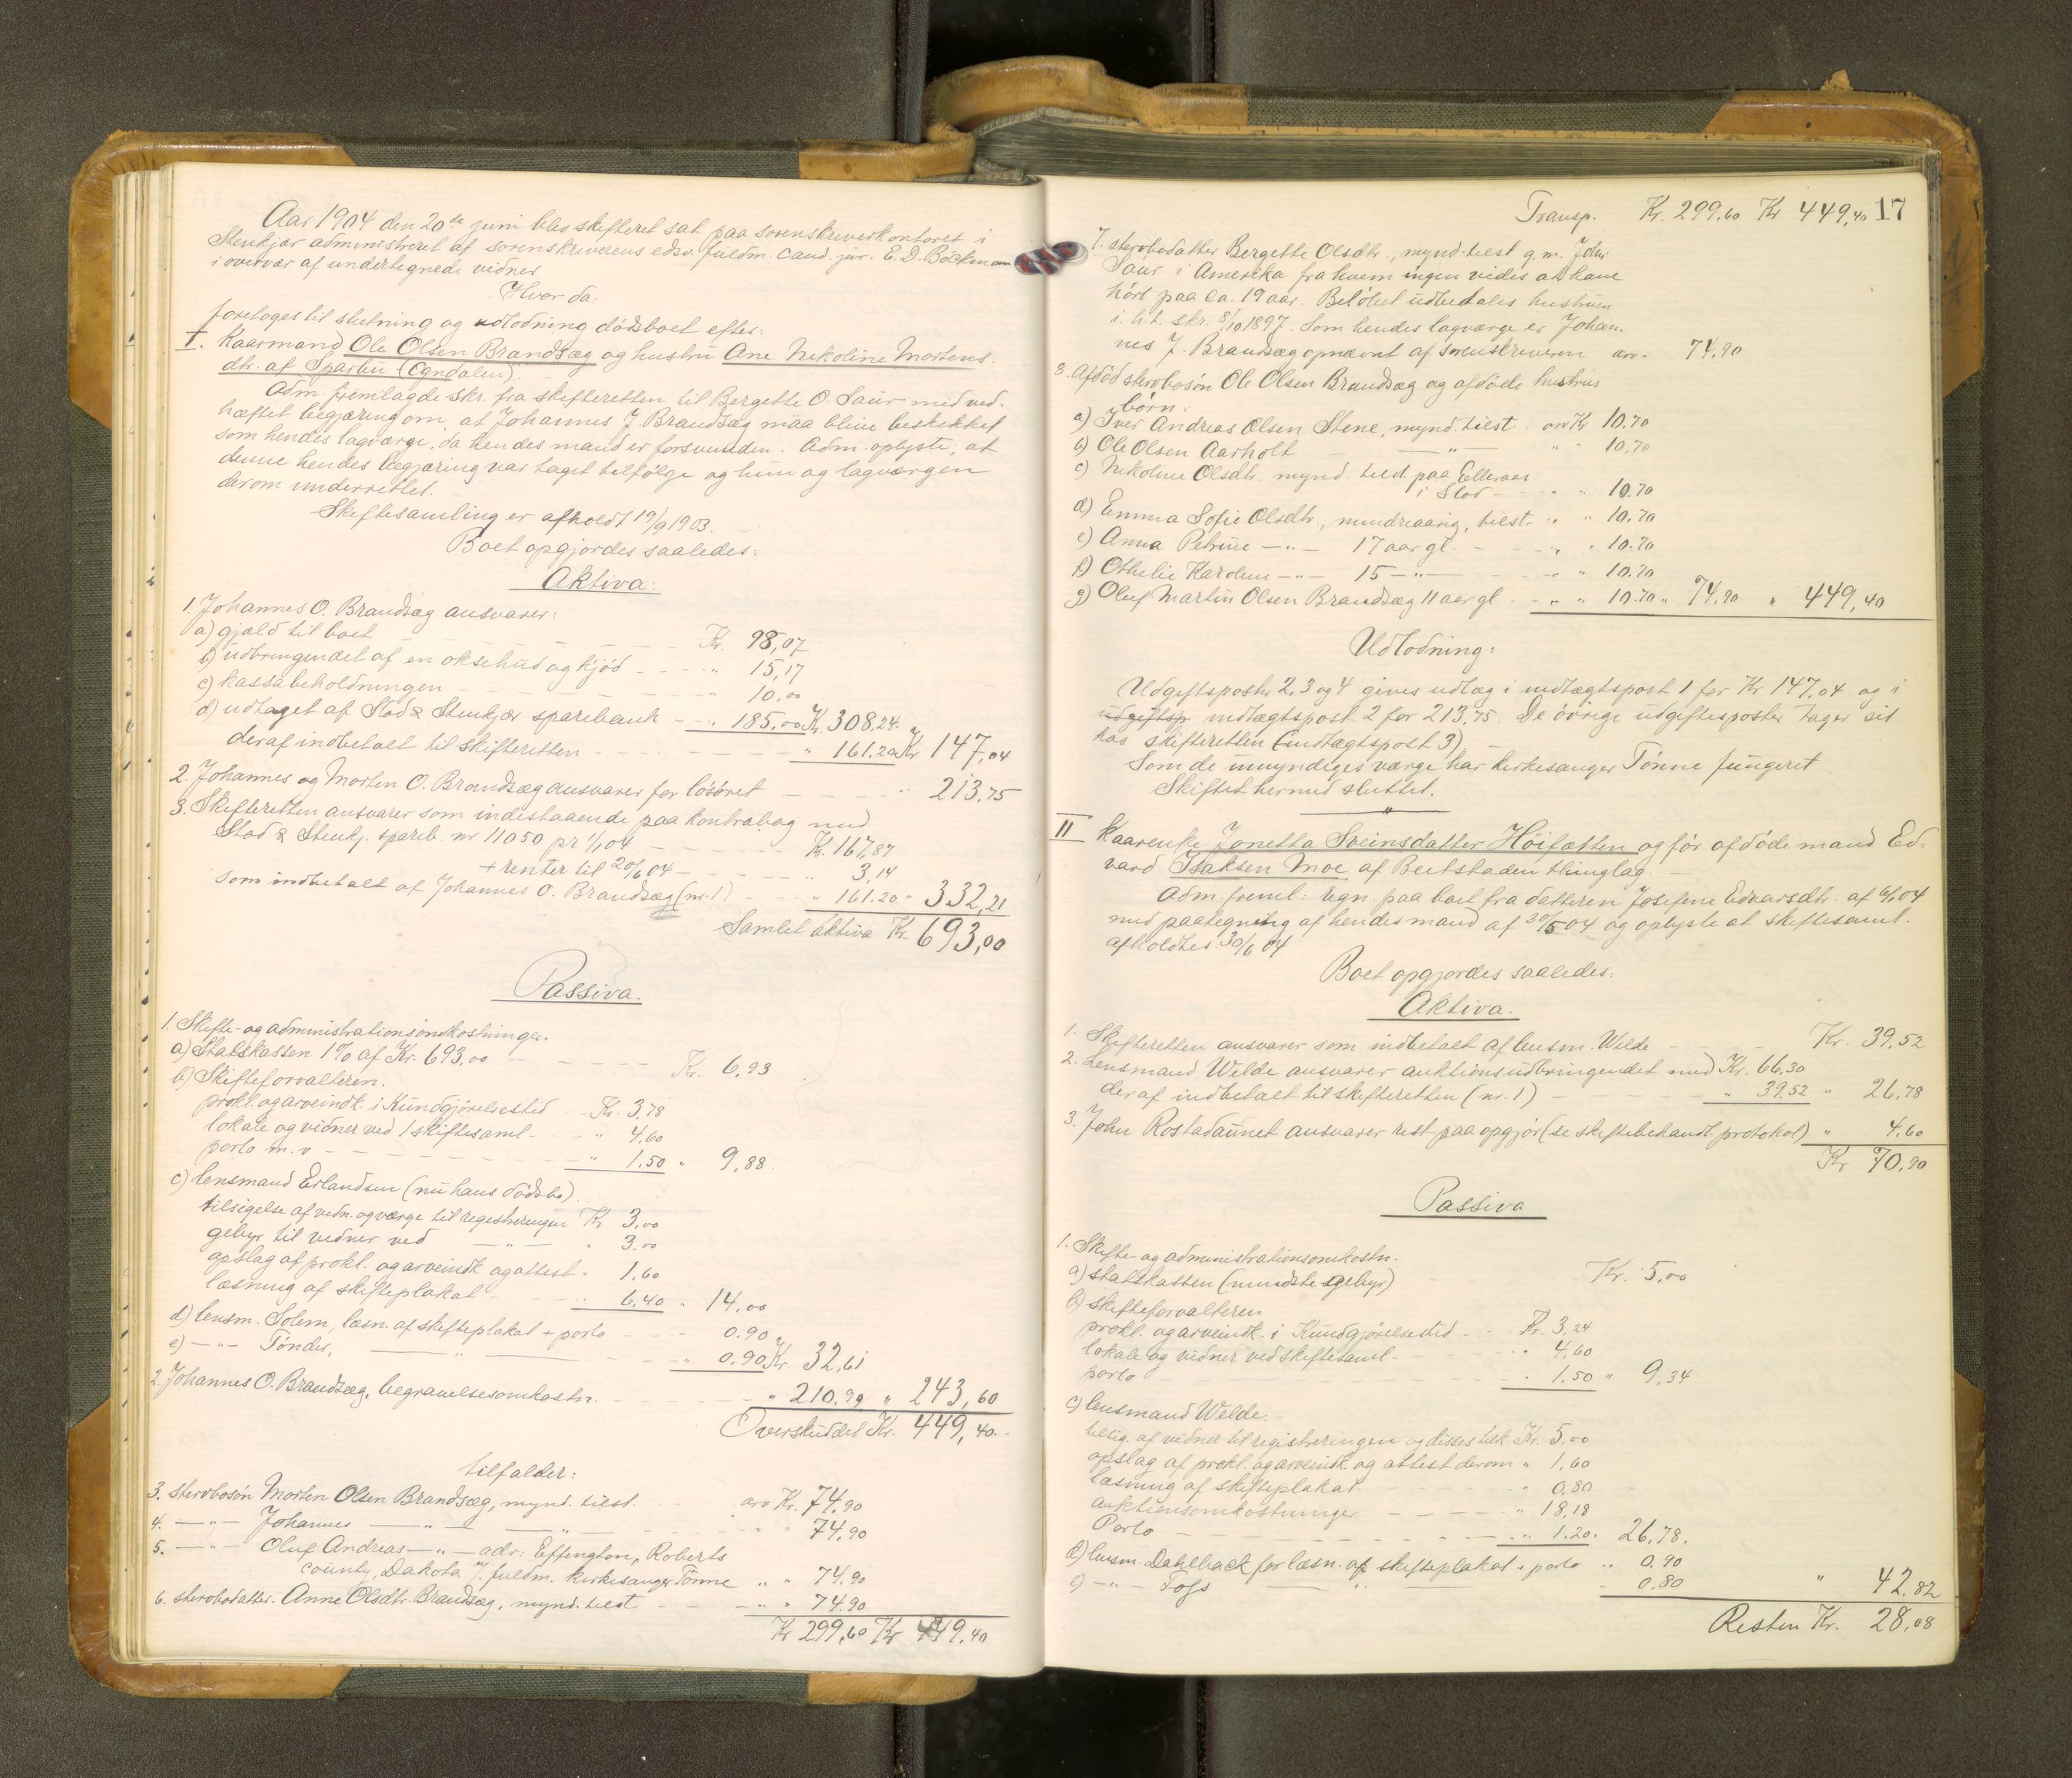 Aar 1904 den 20de juni blev skifteret sat paa sorenskriverkontoret i
Stenkjær administreret af sorenskriverens edsv. fuldm. cand. jur. E. D. Böckman
i overvær af undertegnede vidner
Hvor da.
foretoges til slutning og udlodning dödsboet efter:
I. Kaarmand Ole Olsen Brandsæg og hustru Ane Nikoline Mortens-
dtr. af Sparbu (Ogndalen).
Adm. fremlagde skr. fra skifteretten til Bergette O. Saur med ved-
hæftet begjæring om, at Johannes J. Brandsæg maa blive beskikket
som hendes lagværge, da hendes mand er forsvunden. Adm. oplyste, at
denne hendes begjæring var taget tilfölge og hun og lagværgen
derom underrettet.
Skiftesamling er afholdt 19/9 1903.
Boet opgjordes saaledes:
Aktiva:
1. Johannes O. Brandsæg ansvarer:
a) gjæld til boet Kr. 98,07
b) udbringendet af en oksehud og kjöd " 15,17
c) kassabeholdningen " 10.00
d) udtaget af Stod & Stenkjær sparebank " 185,00 Kr. 308,24
deraf indbetalt til skifteretten " 161.20 Kr 147,04
2. Johannes og Morten O. Brandsæg ansvarer for lösöret " 213,75
3. Skifteretten ansvarer som indestaaende paa kontrabog med
Stod & Stenkj. spareb. nr 11050 pr 1/1 04 Kr. 167,87
+ renter til 20/6 04 " 3,14
som indbetalt af Johannes O. Brandsæg (nr. 1) " 161.20 " 332,21
Samlet aktiva Kr. 693,00
Passiva.
1. Skifte- og administrationsomkostninger.
a) Statskassen 1% af Kr. 693,00 Kr. 6,93
b) Skifteforvalteren.
prokl. og arveindk. i Kundgjörelsestid Kr. 3,78
lokale og vidner ved 1 skiftesaml. " 4,60
porto m. v " 1.50 " 9,88
c) lensmand Erlandsen (nu hans dödsbo).
tilsigelse af vidn. og værge til registreringen Kr 3,00
gebyr til vidner ved — " — " 3.00
opslag af prokl. og arveindk. og attest " 1,60
læsning af skifteplakat " 6,40 " 14.00
d) lensm. Solem, læsn. af skifteplakat + porto 0.90
e) — " — Tönder, — " — " 0.90 Kr. 32,61
2. Johannes O. Brandsæg, begravelsesomkostn. " 210,99 " 243,60
Overskuddet Kr. 449,40.
tilfalder:
3. stervbosön Morten Olsen Brandsæg, mynd. tilst. arv Kr. 74.90
4. — " — Johannes — " — " — " " 74.90
5. — " — Oluf Andreas — " — adr: Effington, Roberts
county, Dakota v. fuldm. kirkesanger Tönne " " 74.90
6. stervbodatter Anne Olsdtr. Brandsæg, mynd. tilst " " 74.90
Kr 299,60 Kr 449,40
Transp. Kr. 299,60 Kr 449,40 17
7. stervbodatter Bergette Olsdtr., mynd. tilst g. m.
Saur i Amerika fra hvem ingen vides at have
hört paa ca. 19 aar. Belöbet udbetales hustruen
i h.t. skr. 8/10 1897. Som hendes lagværge er Johan-
nes J. Brandsæg opnævnt af sorenskriveren arv- 74,90
8. Afdöd stervbosön Ole Olsen Brandsæg og afdöde hustrus
börn:
a) Iver Andreas Olsen Stene, mynd. tilst. arv Kr 10.70
b) Ole Olsen Aarholt — " — " 10.70
c) Nikoline Olsdtr. mynd. tilst paa Elleraas
i Stod " " 10.70
d) Emma Sofie Olsdtr, mindreaarig, tilst. " " 10,70
e) Anna Petrine — " — 17 aar gl. " " 10.70
f) Othelie Karoline — " — 15 — " — " " 10.70
g) Oluf Martin Olsen Brandsæg 11 aar gl " " 10.70 " 74,90 " 449,40
Udlodning:
Udgiftsposter 2, 3 og 4 gives udlæg i indtægtspost 1 for Kr 147,04 og i
udgiftsp. indtægtspost 2 for 213.75. De övrige udgiftsposter tager sit
hos skifteretten (indtægtspost 3)
Som de umyndiges værge har kirkesanger Tönne fungeret
Skiftet hermed sluttet.
"
II Kaarenke Jonetta Sveinsdatter Höifætten og för afdöde mand Ed-
vard Isaksen Moe af Beitstaden thinglag.
Adm. freml. regn. paa boet fra datteren Josefine Edvarsdtr. af 4/6 04
med paategning af hendes mand af 30/5 04 og oplyste at skiftesaml.
afholdtes 30/6 04
Boet opgjordes saaledes:
Aktiva.
1. Skifteretten ansvarer som indbetalt af lensm. Welde Kr. 39,52
2. Lensmand Welde ansvarer auktionsudbringendet med Kr. 66,30
deraf indbetalt til skifteretten (nr. 1) " 39,52 " 26,78
3. John Rostadaunet ansvarer rest paa opgjör (se skiftebehandl. protokol) " 4.60
Kr 70,90
Passiva
1. Skifte- og administrationsomkostn.
a) statskassen (mindste gebyr) Kr. 5,00
b) skifteforvalteren
prokl. og arveindk. i Kundgjörelsestid Kr. 3,24
lokale og vidner ved skiftesaml. " 4,60
porto " 1.50 " 9,34
c) lensmand Welde.
tilsig. af vidner til registreringen og disses tilk. Kr. 5,00
opslag af prokl. og arveindk. og attest derom " 1,60
læsning af skifteplakat " 0,80
auktionsomkostninger " 18,18
Porto " 1.20. 26,78.
d) lensm. Dahlback for læsn. af skifteplakat + porto " 0,90
e) — " — Foss — " — " 0.80 " 42,82
Resten Kr. 28,08